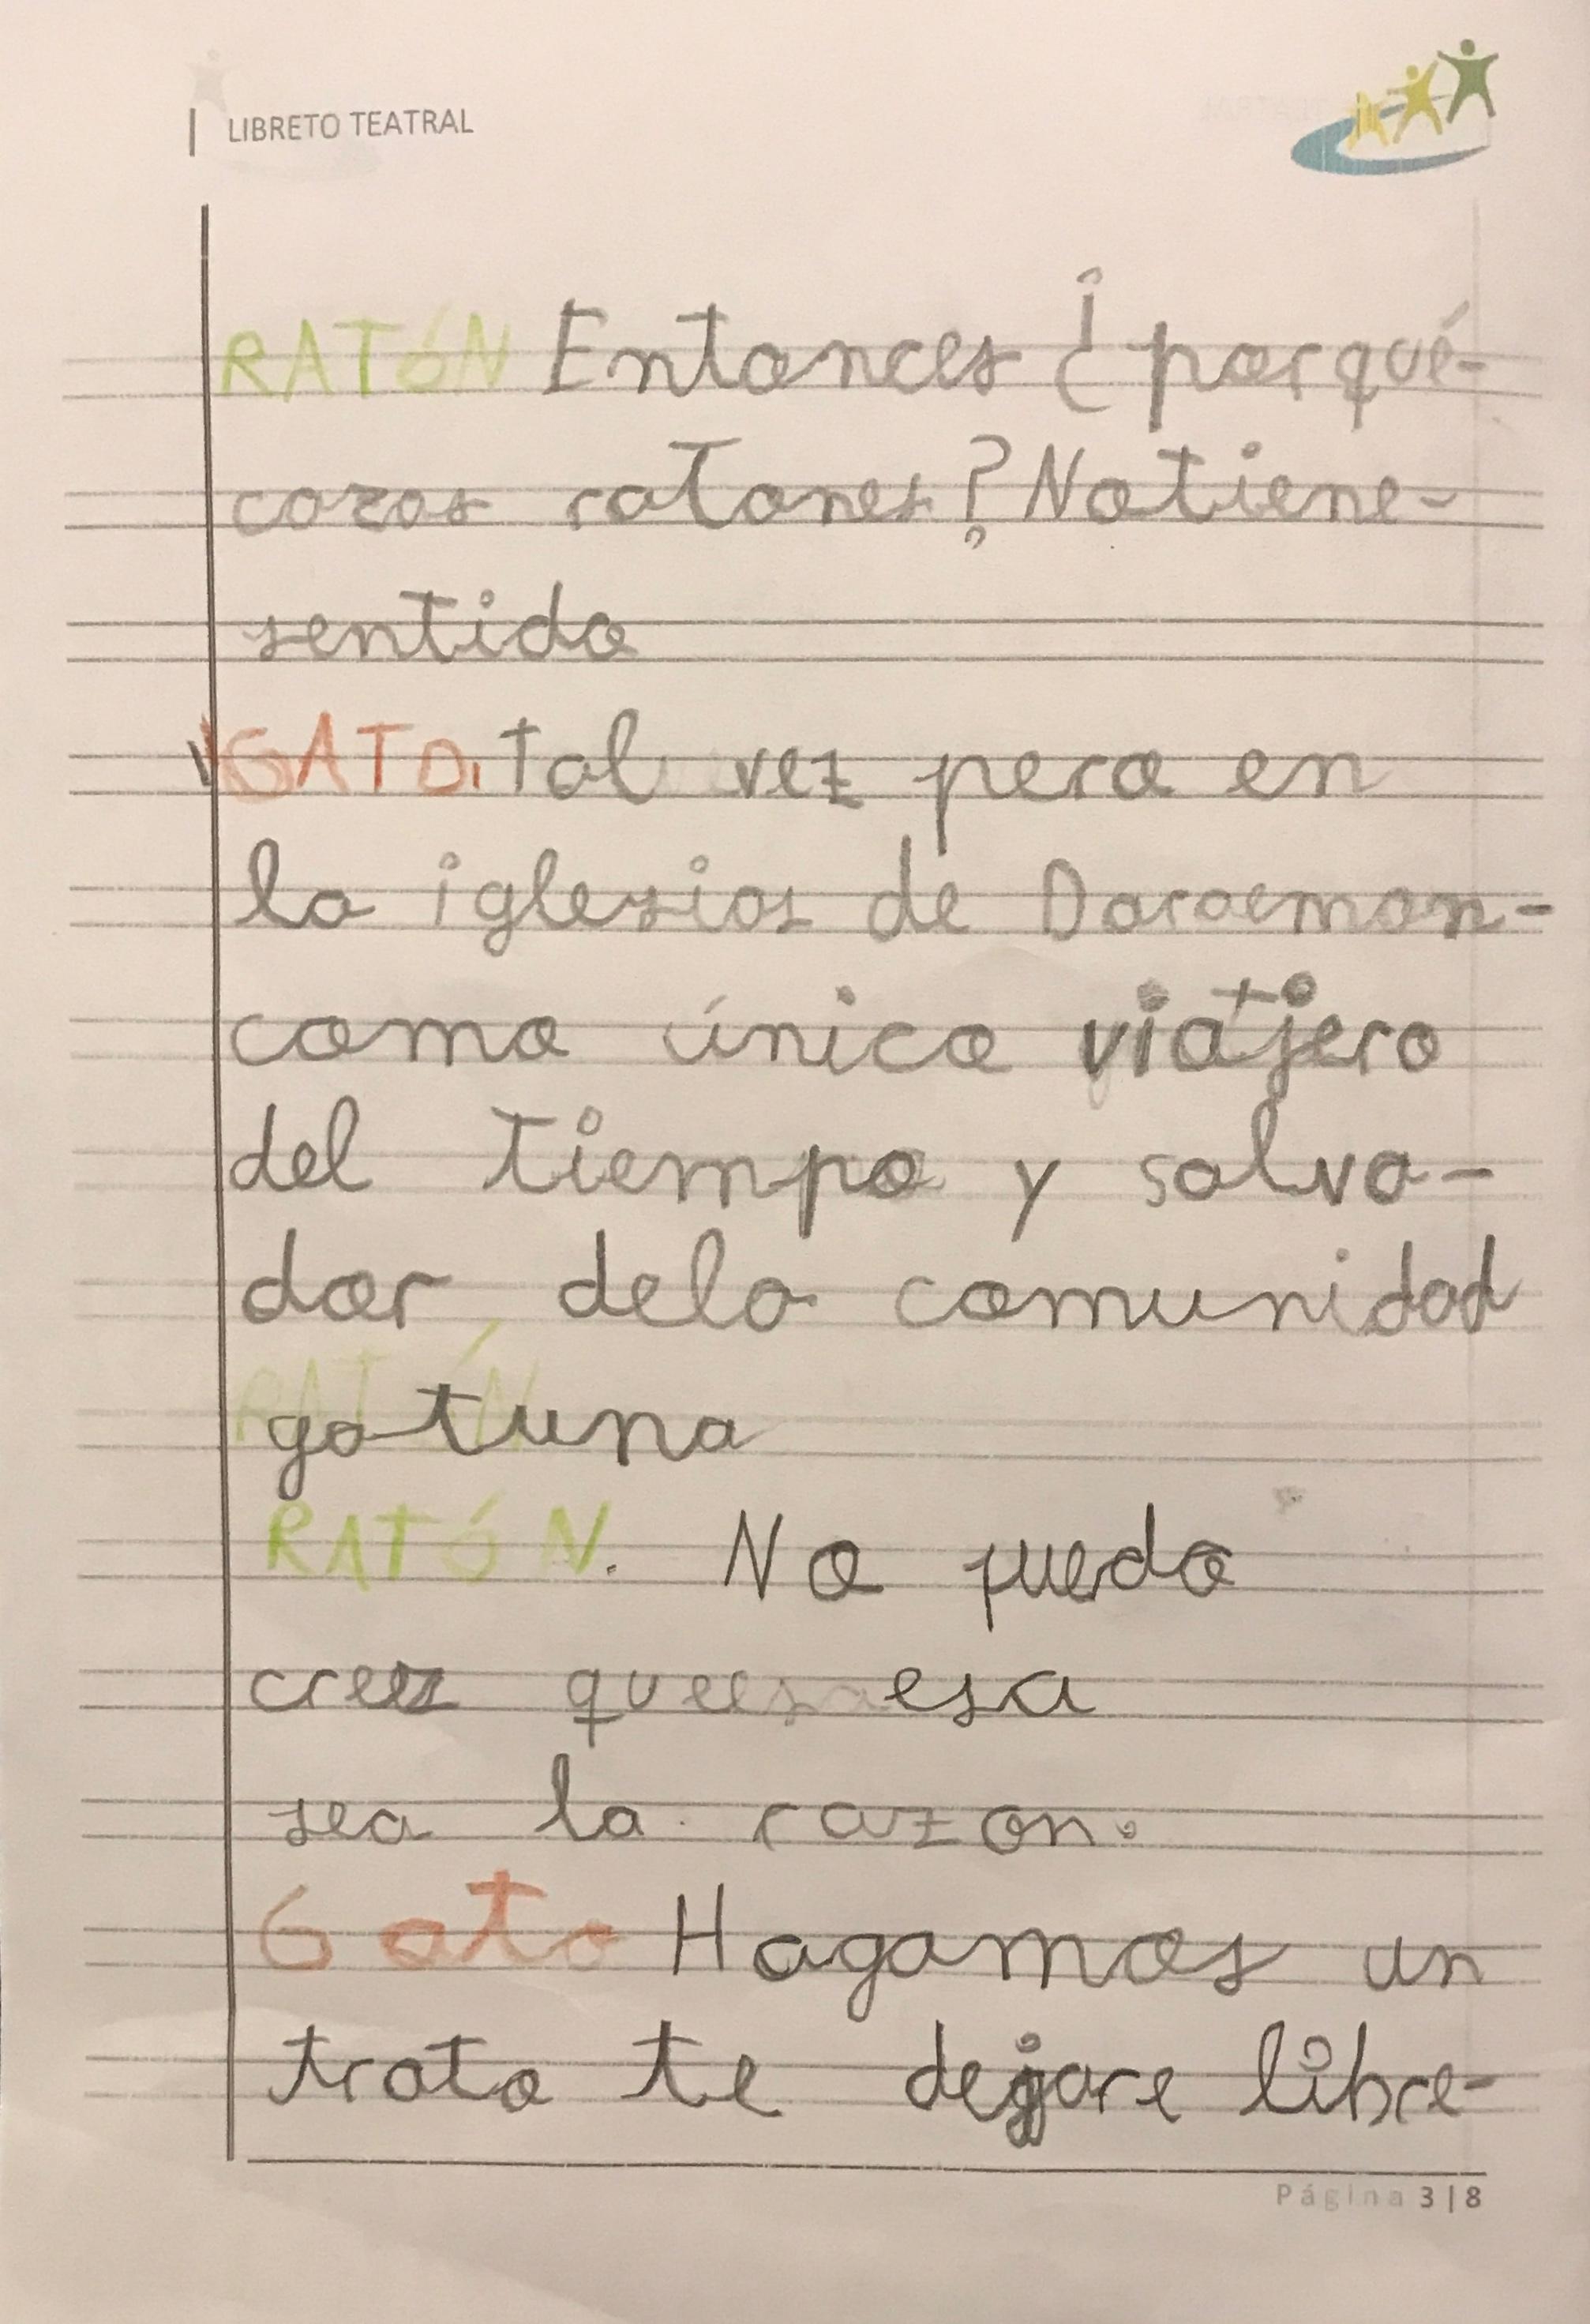 LIBRETO TEATRAL
RATÓN Entonces ¿porqué-
cazas ratones? Notiene-
sentido
GATO. Tal vez pero en
la iglesias de Doraemon-
como único viajero
del tiempo y salva-
dor dela comunidad
gatuna
RATÓN. No puedo
creer que esa
sea la razon.
Gato Hagamos un
trato te dejare libre-
Página 3 | 8